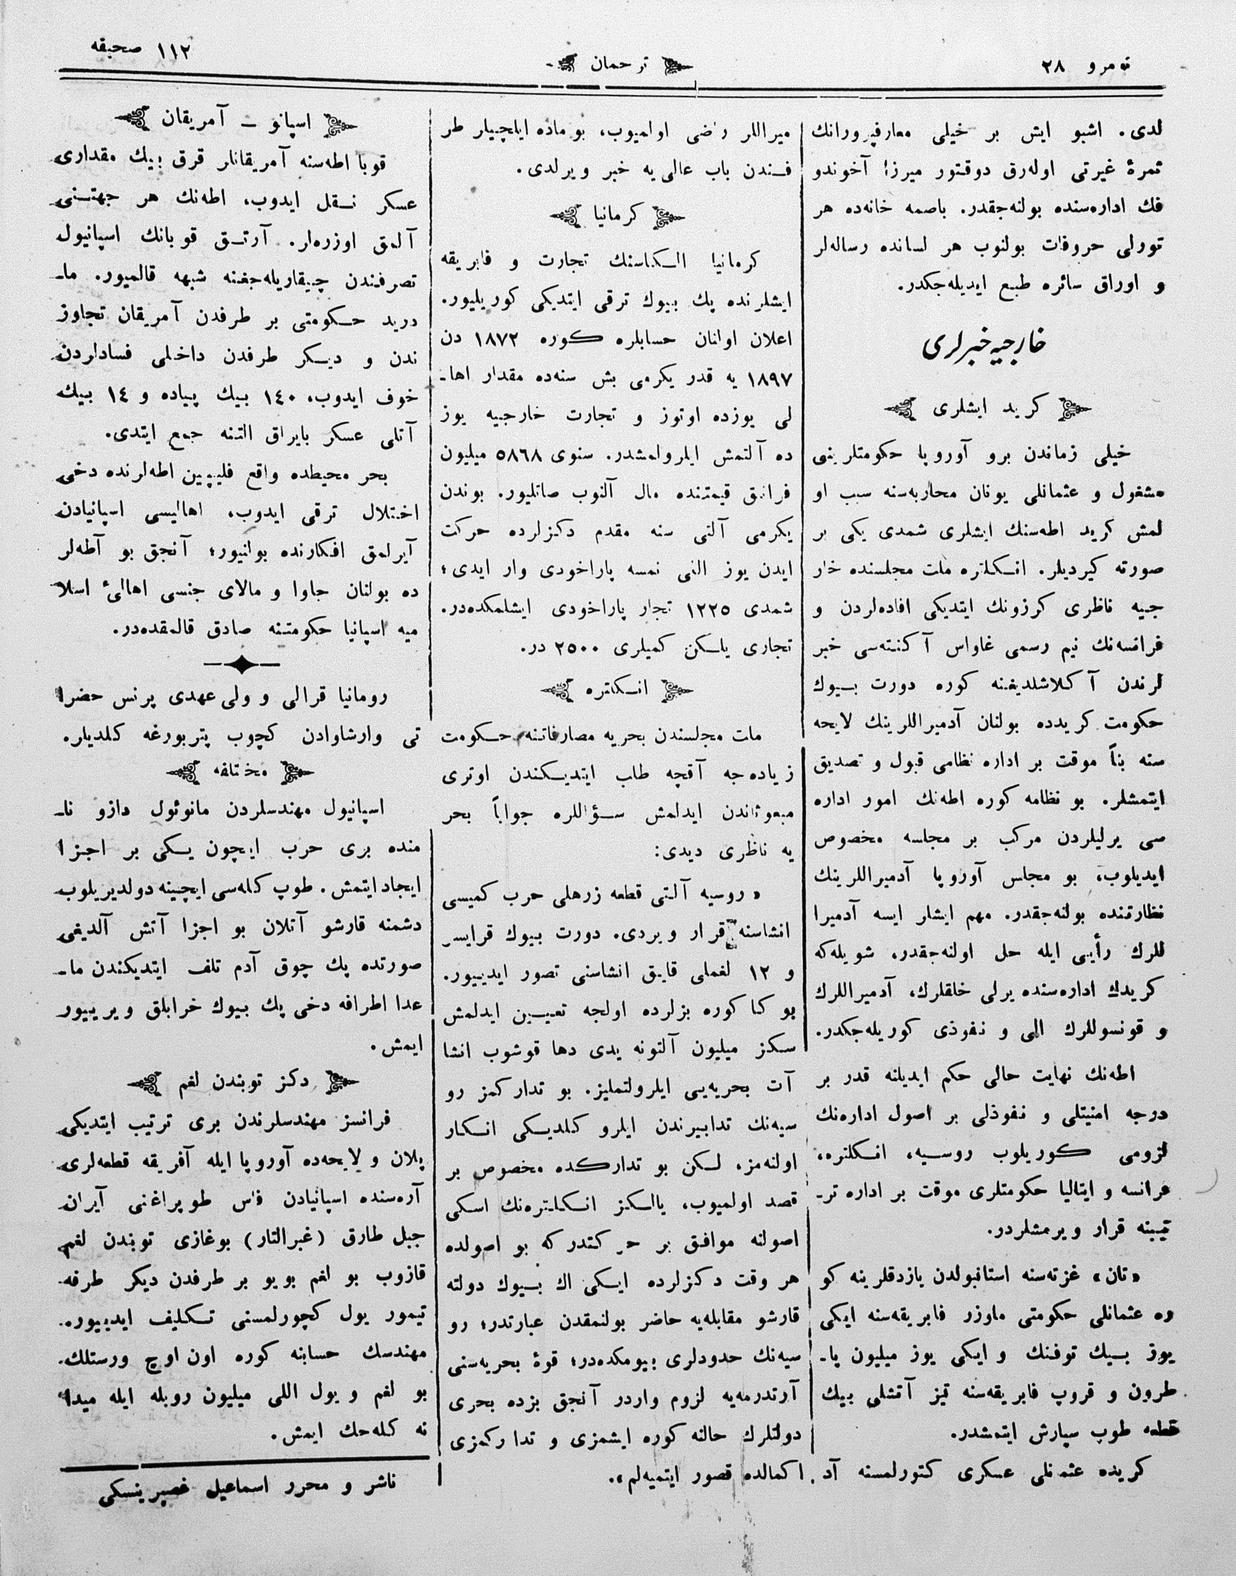 نومرو ٢٨
ترجمان
١١٢ صحیفه
لدی. اشبو ایش بر خیلی معارفپرورانك
ثمرۀ غیرتی اولەرق دوقتور میرزا آخوندو
فك ادارەسنده بولنەجقدر. باصمه خانەده هر
تورلی حروفات بولنوب هر لسانده رسالەلر
و اوراق سائره طبع ایدیلەجکدر.
خارجیه خبرلری
کرید ایشلری
خیلی زماندن برو آوروپا حکومتلرینی
مشغول و عثمانلی یونان محاربەسنه سبب او
لمش کرید اطەسنك ایشلری شمدی یکی بر
صورته کیردیلر. انکلتره ملت مجلسنده خار
جیه ناظری کرزونك ایتدیکی افادەلردن و
فرانسەنك نیم رسمی غاواس آکنتەسی خبر
لرندن آکلاشلدیغنه کوره دورت بیوك
حکومت کریدده بولنان آدمیراللرینك لایحه
سنه بناً موقت بر اداره نظامی قبول و تصدیق
ایتمشلر. بو نظامه کوره اطەنك امور اداره
سی یرلیلردن مرکب بر مجلسه مخصوص
ایدیلوب، بو مجلس آوروپا آدمیراللرینك
نظارتنده بولنەجقدر. مهم ایشلر ایسه آدمیرا
للرك رأیی ایله حل اولنەجقدر، شویلەکه
کریدك ادارەسنده یرلی خلقلرك، آدمیراللرك
و قونسوللرك الی و نفوذی کوریلەجکدر.
اطەنك نهایت حالی حکم ایدیلنه قدر بر
درجه امنیتلی و نفوذلی بر اصول ادارەنك
لزومی کوریلوب روسیه، انکلتره،
فرانسه و ایتالیا حکومتلری موقت بر اداره تر-
تیبنه قرار ویرمشلردر.
«تان» غزتەسنه استانبولدن یازدقلرینه کو
ره عثمانلی حکومتی ماوزر فابریقەسنه ایکی
یوز بیك توفنك و ایکی یوز میلیون پا-
طرون و قروپ فابریقەسنه تیز آتشلی بیك
قطعه طوپ سپارش ایتمشدر.
کریده عثمانلی عسکری کتورلمسنه آد
میراللر راضی اولمیوب، بو ماده ایلچیلر طر
فندن باب عالی یه خبر ویرلدی.
کرمانیا
کرمانیا المکاسنك تجارت و فابریقه
ایشلرنده پك بیوك ترقی ایتدیکی کوریلیور.
اعلان اولنان حسابلره کوره ١٨٧٢ دن
١٨٩٧ یه قدر یکرمی بش سنەده مقدار اها-
لی یوزده اوتوز و تجارت خارجیه یوز
ده آلتمش ایلرولمشدر. سنوی ٥٨٦٨ میلیون
فرانق قیمتنده مال آلنوب صاتلیور. بوندن
یکرمی آلتی سنه مقدم دکزلرده حرکت
ایدن یوز اللی نمسه پاراخودی وار ایدی؛
شمدی ١٢٢٥ تجار پاراخودی ایشلمکدەدر.
تجاری یلکن کمیلری ٢٥٠٠ در.
انکلتره
ملت مجلسندن بحریه مصارفاتنه حکومت
زیادەجه آقچه طلب ایتدیکندن اوتری
مبعوثاندن ایدلمش سؤاللره جواباً بحر
یه ناظری دیدی:
« روسیه آلتی قطعه زرهلی حرب کمیسی
انشاسنه قرار ویردی. دورت بیوك قرایسر
و ١٢ لغملی قایق انشاسنی تصور ایدییور.
بو کا کوره بزلرده اولجه تعیین ایدلمش
سکز میلیون آلتونه یدی دها قوشوب انشا
آت بحریەیی ایلرولتملیز. بو تدارکمز رو
سیەنك تدابیرندن ایلرو کلدیکی انکار
اولنەمز، لکن بو تدارکده مخصوص بر
قصد اولمیوب، یالکز انکلترەنك اسکی
اصولنه موافق بر حرکتدر که بو اصولده
هر وقت دکزلرده ایکی اك بیوك دولته
قارشو مقابلەیه حاضر بولنمقدن عبارتدر؛ رو
سیەنك حدودلری بیومکدەدر؛ قوۀ بحریەسنی
آرتدرمەیه لزوم واردر آنجق بزده بحری
دولتلرك حالنه کوره ایشمزی و تدارکمزی
اکمالده قصور ایتمیەلم».
اسپانو – آمریقان
قوبا اطەسنه آمریقانلر قرق بیك مقداری
عسکر نقل ایدوب، اطەنك هر جهتنی
آلمق اوزرەلر. آرتق قوبانك اسپانیول
تصرفندن چیقاریلەجغنه شبهه قالمیور. ما-
درید حکومتی بر طرفدن آمریقان تجاوز
ندن و دیکر طرفدن داخلی فسادلردن
خوف ایدوب، ١٤٠ بیك پیاده و ١٤ بیك
آتلی عسکر بایراق التنه جمع ایتدی.
بحر محیطده واقع فلیپین اطەلرنده دخی
اختلال ترقی ایدوب، اهالیسی اسپانیادن
آیرلمق افکارنده بولنیور؛ آنجق بو آطەلر
ده بولنان جاوا و مالای جنسی اهالیٔ اسلا
میه اسپانیا حکومتنه صادق قالمقدەدر.
رومانیا قرالی و ولی عهدی پرنس حضرا
تی وارشاوادن کچوب پتربورغه کلدیلر.
مختلفه
اسپانیول مهندسلردن مانوئول دازو نا-
منده بری حرب ایچون یکی بر اجزا
ایجاد ایتمش. طوپ کلەسی ایچینه دولدیریلوب
دشمنه قارشو آتلان بو اجزا آتش آلدیغی
صورتده پك چوق آدم تلف ایتدیکندن ما-
عدا اطرافه دخی پك بیوك خرابلق ویرییور
ایمش.
دکز توبندن لغم
فرانسز مهندسلرندن بری ترتیب ایتدیکی
پلان و لایحەده آوروپا ایله آفریقه قطعەلری
آرەسنده اسپانیادن فاس طوپراغنی آیران
جبل طارق (غبرالتار) بوغازی توبندن لغم
قازوب بو لغم بویو بر طرفدن دیکر طرفه
تیمور یول کچورلمسنی تکلیف ایدییور.
مهندسك حسابنه کوره اون اوچ ورستلك
بو لغم و یول اللی میلیون روبله ایله میدا
نه کلەجك ایمش.
ناشر و محرر اسماعیل غصپرینسکی